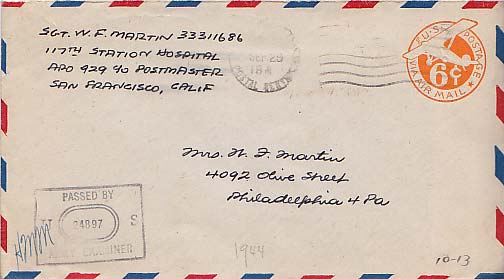 SGT. W. F. MARTIN 33311686
117TH STATION HOSPITAL
APO 929 c/o POSTMASTER
SAN FRANCISCO, CALIF
SEP 29
POSTAL
U.S. POSTAGE
6¢
VIA AIR MAIL
Mrs. W. F. Martin
4092 Olive Street
Philadelphia 4 Pa
PASSED BY
U 24897 S
ARMY EXAMINER
1944
10-13